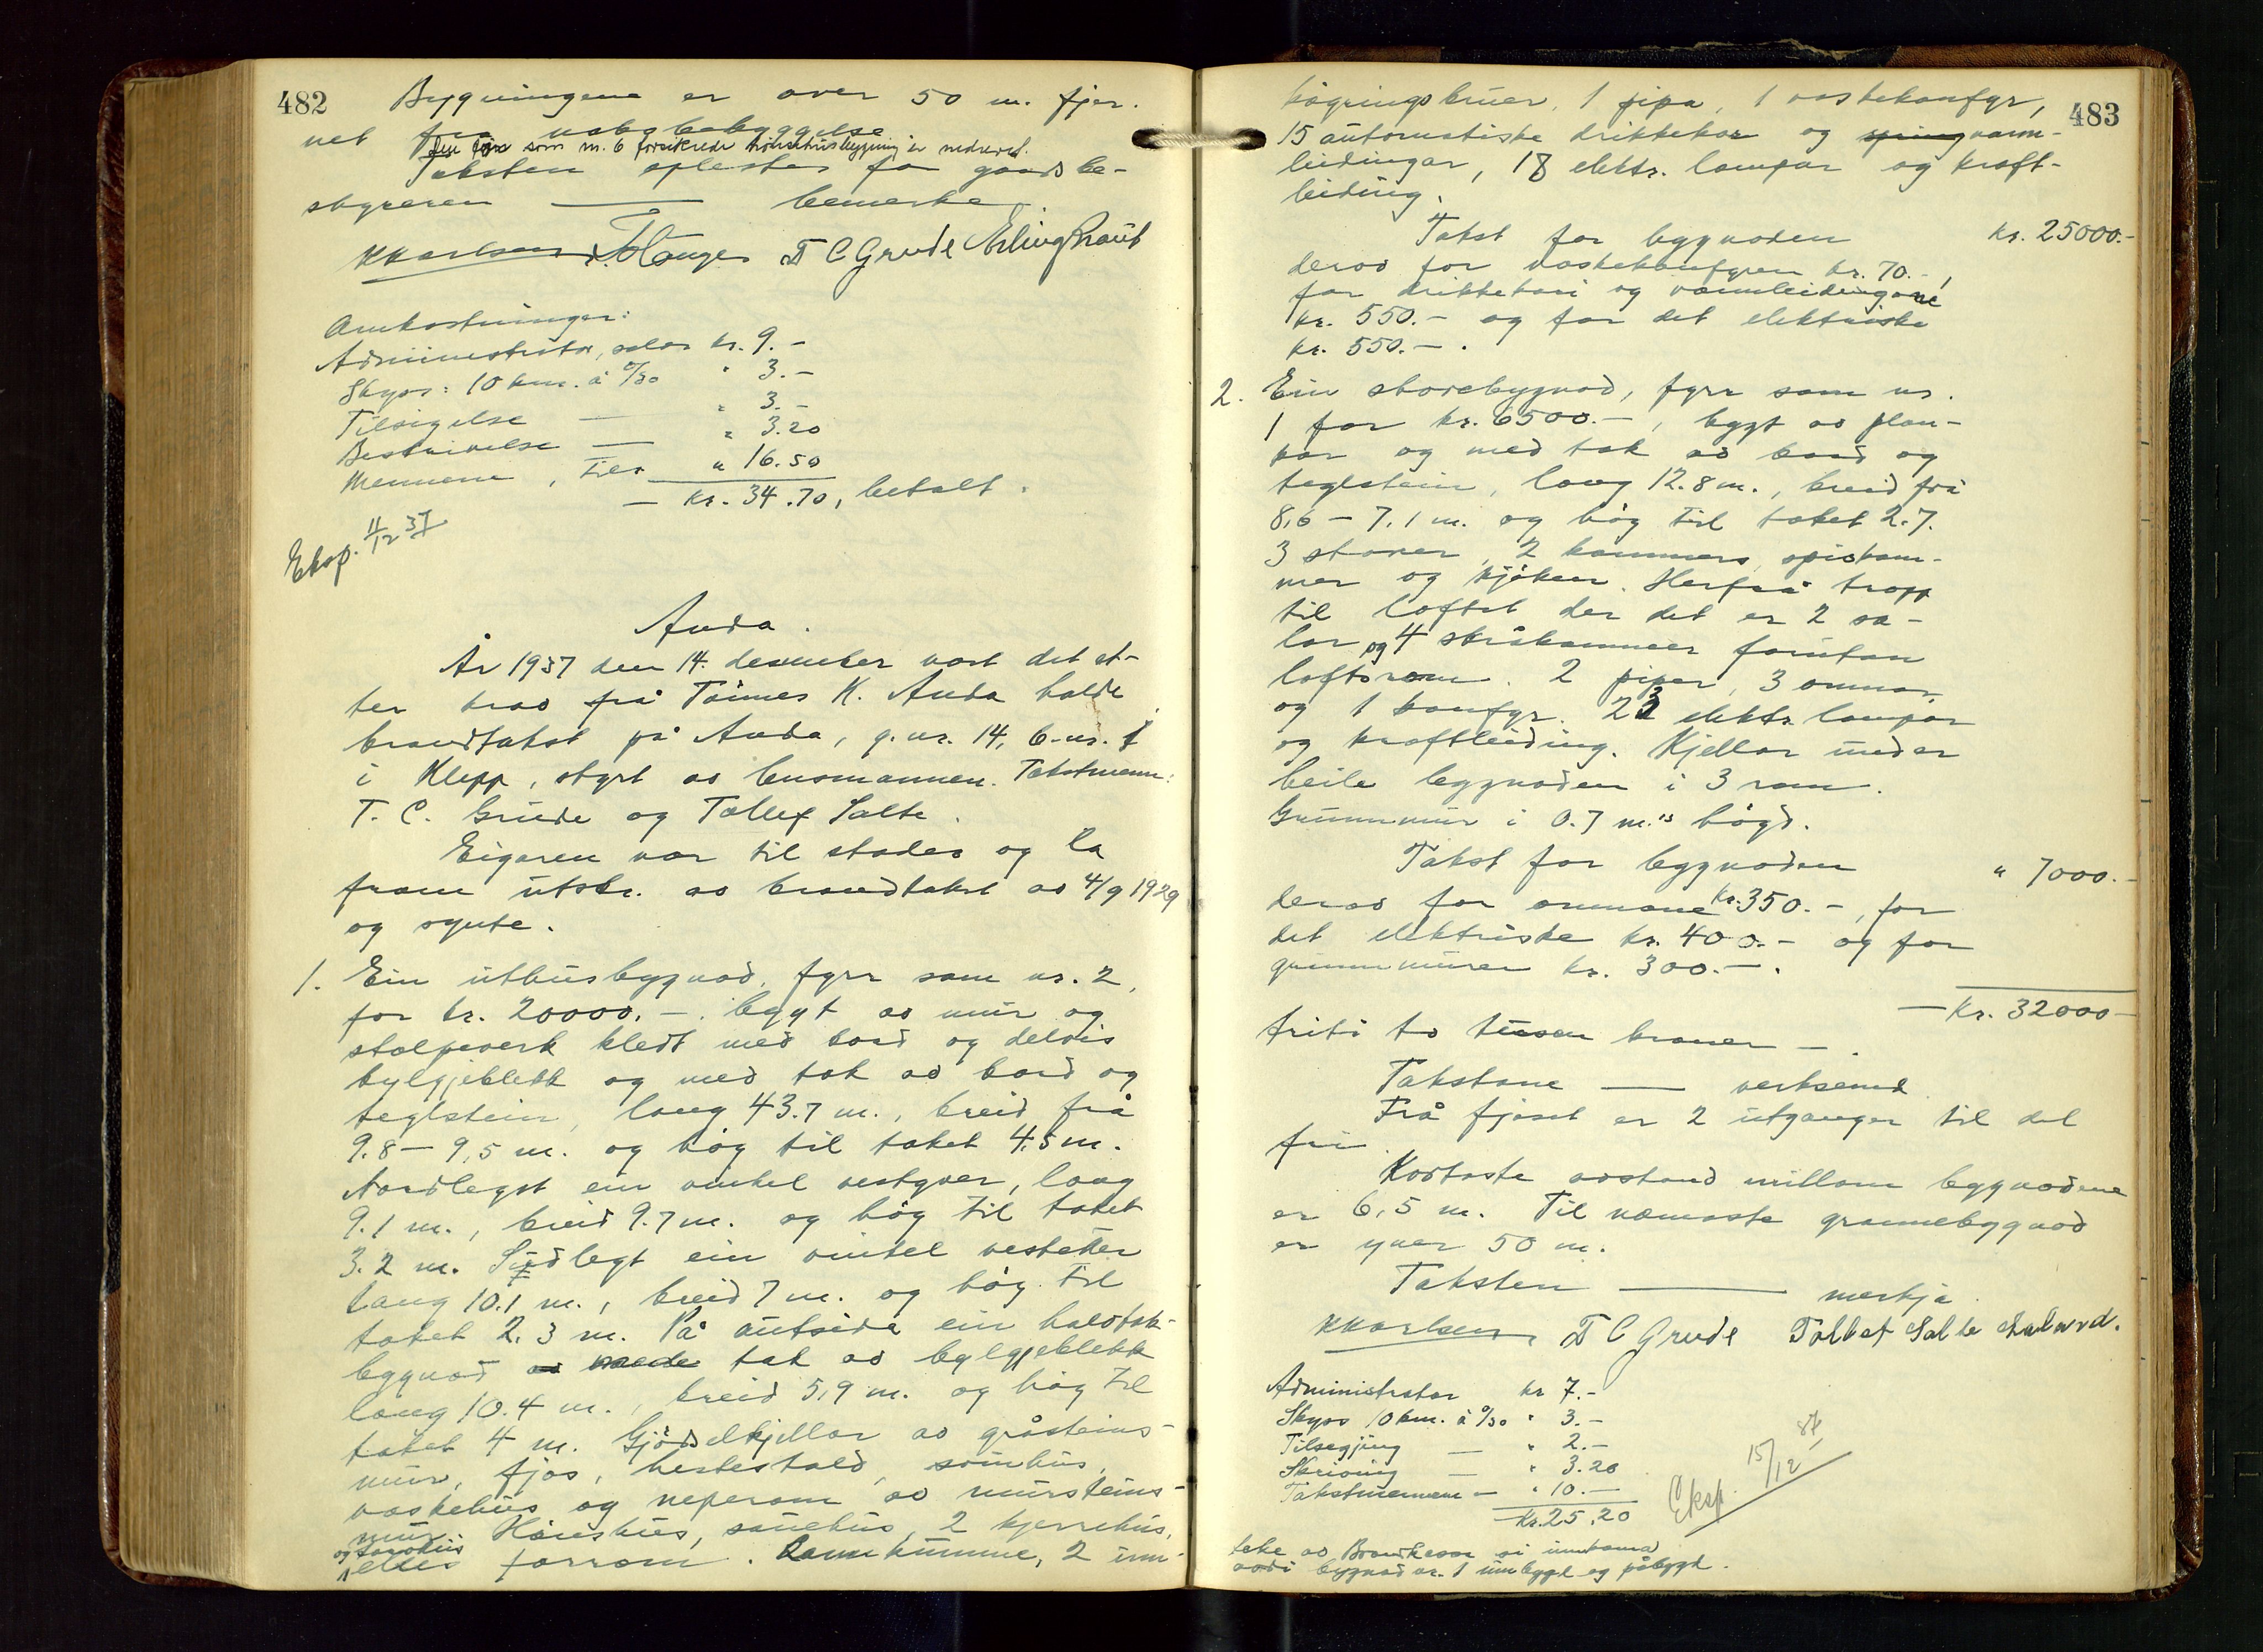 482
Bygningene er over 50 m. fjer-
net fra nabobebyggelse
Den före som nr. 6 forsikrede hönsehusbygning er nedrevet.
Taksten oplestes for gaardsbe-
styreren — bemerke
KKarlsen T. Hauge T C Grude Erling Braut
Omkostninger:
Administrator, salær kr. 9.-
Skyss: 10 km. á 0/30 " 3.-
Tilsigelse — " 3.-
Beskrivelse — " 3.20
Mennene, tils. " 16.50
— kr. 34.70, betalt.
Eksp. 11/12 37
Anda.
År 1937 den 14. desember vart det et-
ter krav frå Tönnes K. Anda halde
brandtakst på Anda, g.nr. 14, b.nr. 1
i Klepp, styrt av lensmannen. Takstmenn:
T. C. Grude og Tollef Salte.
Eigaren var til stades og la
fram utskr. av brandtakst av 4/9 1929
og synte.
1. Ein uthusbygnad, fyrr som nr. 2,
for kr. 20000.-, bygt av mur og
stolpeverk kledt med bord og delvis
bylgjeblekk og med tak av bord og
teglstein, lang 43.7 m., breid frå
9.8 - 9,5 m. og höy til taket 4,5 m.
Nordlegst ein vinkel vestyver, lang
9.1 m., breid 9.7 m. og höy til taket
3.2 m. Sudlegt ein vinkel vestetter
lang 10.1 m., breid 7 m. og höy til
taket 2.3 m. På autsida ein halvtak-
bygnad med tak av bylgjeblekk
lang 10.4 m., breid 5,9 m. og höy til
taket 4 m. Gjödselkjellar av gråsteins-
mur, fjos, hestestald, svinhus,
vaskehus og neperom av mursteins-
mur. Hönehus, sauehus, 2 kjerrehus,
og torvhus
elles forrom. Landkumme, 2 inn-
483
högringsbruer, 1 pipa, 1 vaskekomfyr,
15 automatiske drikkekar og vann-
leidingar, 18 elektr. lampar og kraft-
leiding.
Takst for bygnaden kr. 25000.-
derav for vaskekomfyren kr. 70.-,
for drikkekari og vannleidingane
kr. 550.- og for det elektriske
kr. 550.-.
2. Ein stovebygnad, fyrr som nr.
1 for kr. 6500.-, bygt av plan-
kar og med tak av bord og
teglstein, lang 12.8 m., breid frå
8,6 - 7,1 m. og höy til taket 2.7.
3 stover, 2 kammers, spiskam-
mer og kjöken. Herfrå tropp
til loftet der det er 2 sa-
lar og 4 skråkammer forutan
loftsrom. 2 piper, 3 omnar
og 1 komfyr. 23 elektr. lampar
og kraftleiding. Kjellar under
heile bygnaden i 3 rom.
Grunnmur i 0.7 m.s högd.
Takst for bygnaden " 7000.-
derav for omnane kr. 350.-, for
det elektriske kr. 400.- og for
grunnmuren kr. 300.-.
— Kr. 32000
triti to tusen kroner —.
Takstane — verksemd
Frå fjoset er 2 utganger til det
fri.
Kortaste avstand millom bygnadene
er 6,5 m. Til næmaste grannebygnad
er yver 50 m.
Taksten — merkja.
KKarlsen T C Grude Tollef Salte
Administrator kr 7.-
Skyss 10 km. á 0/30 " 3.-
Tilsegjing — " 2.-
Skriving — " 3.20
Takstmennene — " 10.—
Kr. 25,20
Eksp. 15/12 37
av Brandkassa
avdi bygnad nr. 1 umbygt og påbygt.